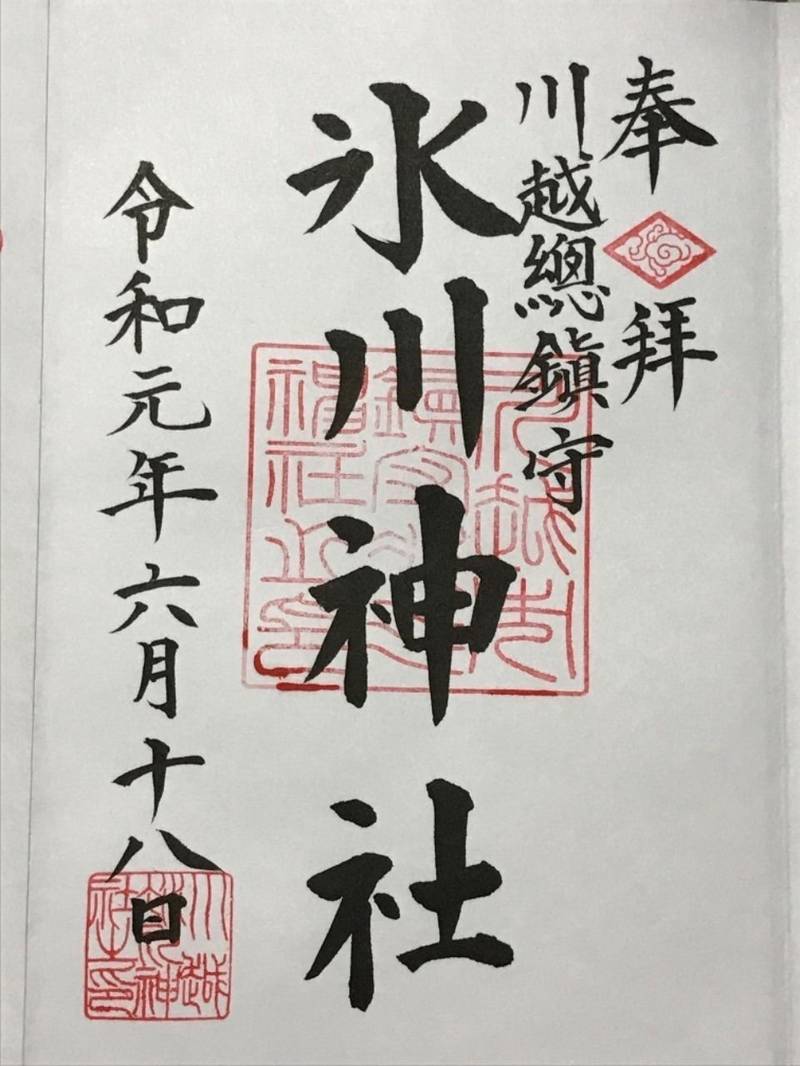 奉拝
川越總鎮守
氷川神社
令和元年六月十八日